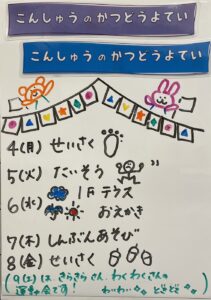 こんしゅうのかつどうよてい
こんしゅうのかつどうよてい
4(月) せいさく
5(火) たいそう
6(水) 1Fテラス
おえかき
7(木) しんぶんあそび
8(金) せいさく
(9(土)は、きらきらさん、わくわくさんの
運動会です! わいわい どきどき)